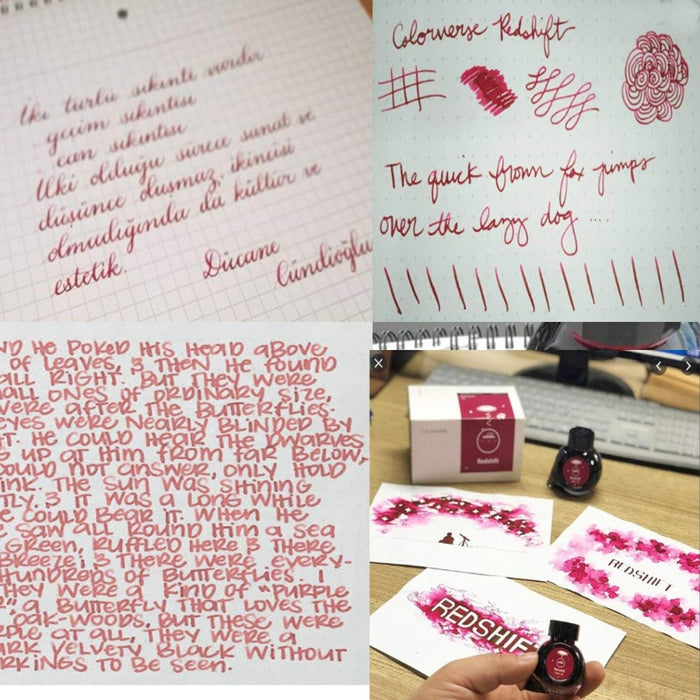 İki türlü sıkıntı vardır
geçim sıkıntısı
can sıkıntısı
İlki olduğu sürece sanat ve
düşünce olusmaz, ikincisi
olmadığında da kültür ve
estetik.
Dücane
Cündioğlu
Colorverse Redshift
The quick brown fox jumps
over the lazy dog ....
ND HE POKED HIS HEAD ABOVE
OF LEAVES, & THEN HE FOUND
ALL RIGHT. BUT THEY WERE
ALL ONES OF ORDINARY SIZE,
WERE AFTER THE BUTTERFLIES.
EYES WERE NEARLY BLINDED BY
T. HE COULD HEAR THE DWARVES
G UP AT HIM FROM FAR BELOW,
OULD NOT ANSWER, ONLY HOLD
INK. THE SUN WAS SHINING
TLY, & IT WAS A LONG WHILE
E COULD BEAR IT. WHEN HE
SAW ALL ROUND HIM A SEA
GREEN, RUFFLED HERE & THERE
BREEZE; & THERE WERE, EVERY-
HUNDREDS OF BUTTERFLIES. I
THEY WERE A KIND OF "PURPLE
R", A BUTTERFLY THAT LOVES THE
OAK-WOODS, BUT THESE WERE
PLE AT ALL, THEY WERE A
ARK VELVETY BLACK WITHOUT
RKINGS TO BE SEEN.
Redshift
REDSHIFT
REDSHIF